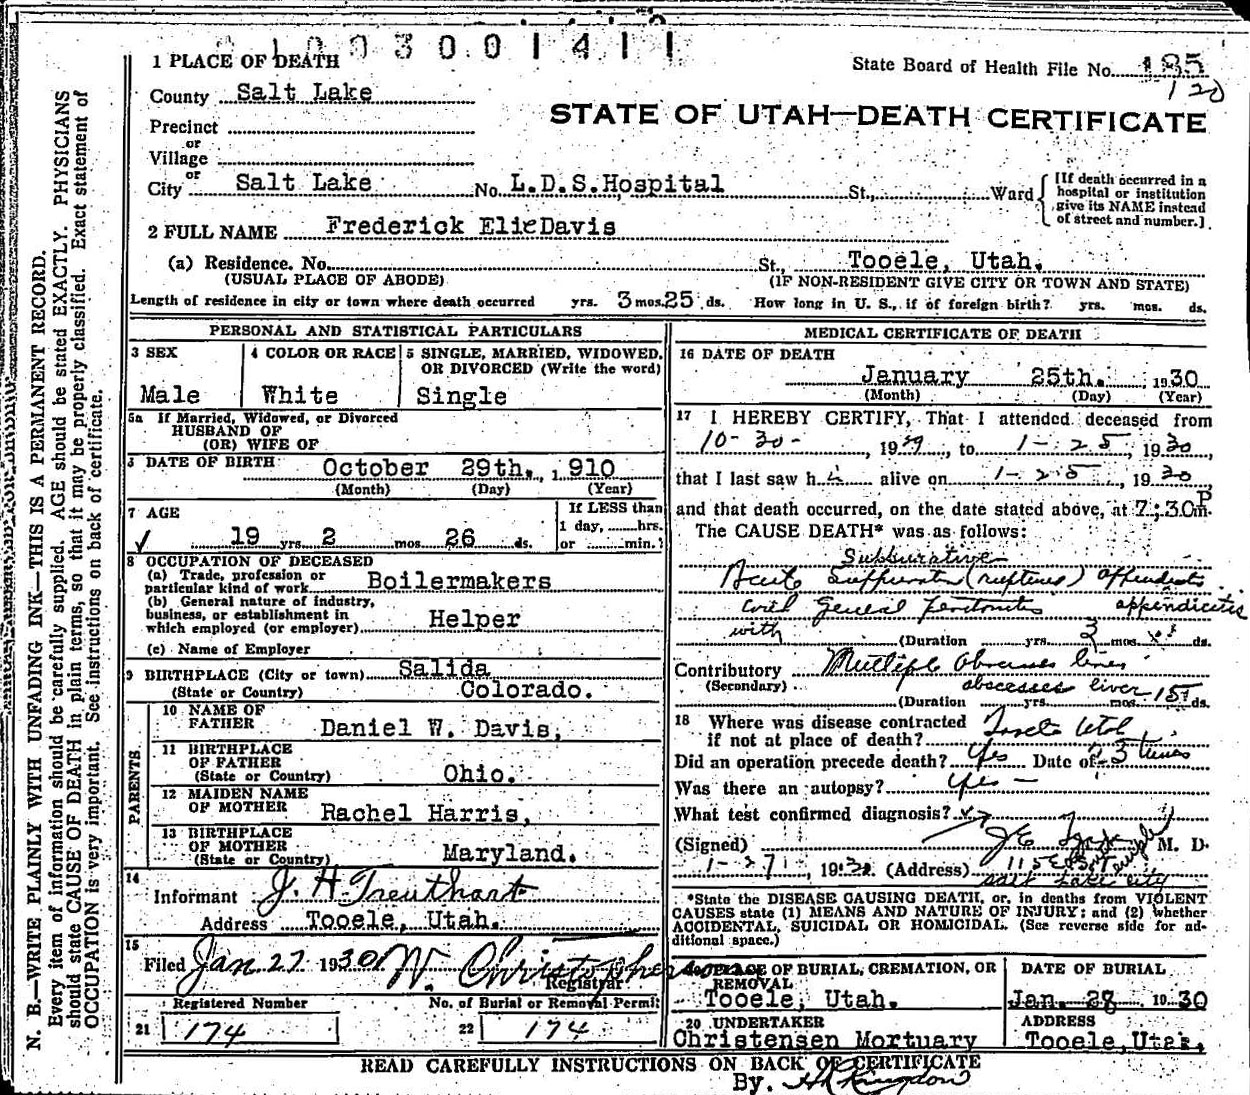 1003001411
1 PLACE OF DEATH
State Board of Health File No. 185
120
County Salt Lake
STATE OF UTAH—DEATH CERTIFICATE
Precinct
or
Village
or
City Salt Lake No. L.D.S.Hospital St., Ward
[If death occurred in a hospital or institution give its NAME instead of street and number.]
2 FULL NAME Frederick Davis
(a) Residence. No. St., Tooele, Utah.
(USUAL PLACE OF ABODE) (IF NON-RESIDENT GIVE CITY OR TOWN AND STATE)
Length of residence in city or town where death occurred yrs. 3 mos. 25 ds. How long in U. S., if of foreign birth? yrs. mos. ds.
PERSONAL AND STATISTICAL PARTICULARS
3 SEX
Male
4 COLOR OR RACE
White
5 SINGLE, MARRIED, WIDOWED, OR DIVORCED (Write the word)
Single
5a If Married, Widowed, or Divorced
HUSBAND OF
(OR) WIFE OF
DATE OF BIRTH October 29th., 1910
(Month) (Day) (Year)
7 AGE
19 yrs 2 mos 26 ds.
If LESS than
1 day, hrs.
or min.
8 OCCUPATION OF DECEASED
(a) Trade, profession or
particular kind of work Boilermakers
(b) General nature of industry,
business, or establishment in
which employed (or employer) Helper
(c) Name of Employer
9 BIRTHPLACE (City or town) Salida
(State or Country) Colorado.
PARENTS
10 NAME OF
FATHER Daniel W. Davis,
11 BIRTHPLACE
OF FATHER
(State or Country) Ohio.
12 MAIDEN NAME
OF MOTHER Rachel Harris,
13 BIRTHPLACE
OF MOTHER
(State or Country) Maryland.
14
Informant J. H. Treuthart
Address Tooele, Utah.
15
Filed Jan 27 1930 W. Christopherson
Registrar
Registered Number
21 174
No. of Burial or Removal Permit
22 174
MEDICAL CERTIFICATE OF DEATH
16 DATE OF DEATH
January 25th. 1930
(Month) (Day) (Year)
17 I HEREBY CERTIFY, That I attended deceased from
10-30-, 1929, to 1-25, 1930,
that I last saw h alive on 1-25, 1930,
and that death occurred, on the date stated above, at 7:30 P m.
The CAUSE DEATH* was as follows:
Suppurative
Acute (ruptured)
with General Peritonitis appendicitis
with (Duration yrs. mos. ds.
Contributory Multiple
(Secondary) abscesses liver
(Duration yrs. mos. 15 ds.
18 Where was disease contracted
if not at place of death? Utah
Did an operation precede death? Yes Date of 3 times
Was there an autopsy? Yes —
What test confirmed diagnosis?
(Signed) M. D.
1-27, 1930. (Address) 115 E So Temple
Salt Lake City
*State the DISEASE CAUSING DEATH, or, in deaths from VIOLENT
CAUSES state (1) MEANS AND NATURE OF INJURY; and (2) whether
ACCIDENTAL, SUICIDAL OR HOMICIDAL. (See reverse side for additional space.)
PLACE OF BURIAL, CREMATION, OR
REMOVAL
Tooele, Utah.
DATE OF BURIAL
Jan. 28 1930
20 UNDERTAKER
Christensen Mortuary
ADDRESS
Tooele, Utah.
READ CAREFULLY INSTRUCTIONS ON BACK OF CERTIFICATE
By.
N. B.—WRITE PLAINLY WITH UNFADING INK—THIS IS A PERMANENT RECORD.
Every item of information should be carefully supplied. AGE should be stated EXACTLY. PHYSICIANS
should state CAUSE OF DEATH in plain terms, so that it may be properly classified. Exact statement of
OCCUPATION is very important. See instructions on back of certificate.